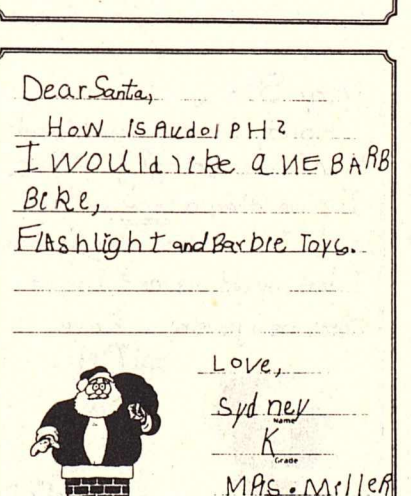 Dear Santa,
How is RudolPH?
I would like a NE BARB
BiRe,
FlAshlight and Barbie Toys.
Love,
Sydney
Name
K
Grade
MRs. Miller